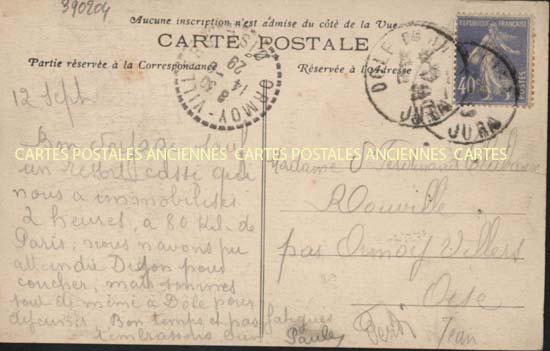 390204
Aucune inscription n'est admise du côté de la Vue
CARTE POSTALE
Partie réservée à la Correspondance
Réservée à l'Adresse
REPUBLIQUE FRANÇAISE
40
DOLE
JURA
JURA
ORMOY VILL
14
29
12 Sept
CARTES POSTALES ANCIENNES CARTES POSTALES ANCIENNES CARTES POSTALES ANCIENNES
un ressort cassé qui
nous a immobilisés
2 heures, à 80 kil. de
Paris, nous n'avons pu
atteindre Dijon pour
coucher, mais sommes
tout de même à Dôle pour
déjeuner. Bon temps et pas fatigués
Madame Ferdinand
Rouville
par Ormoy Villers
Oise
Paule
Jean